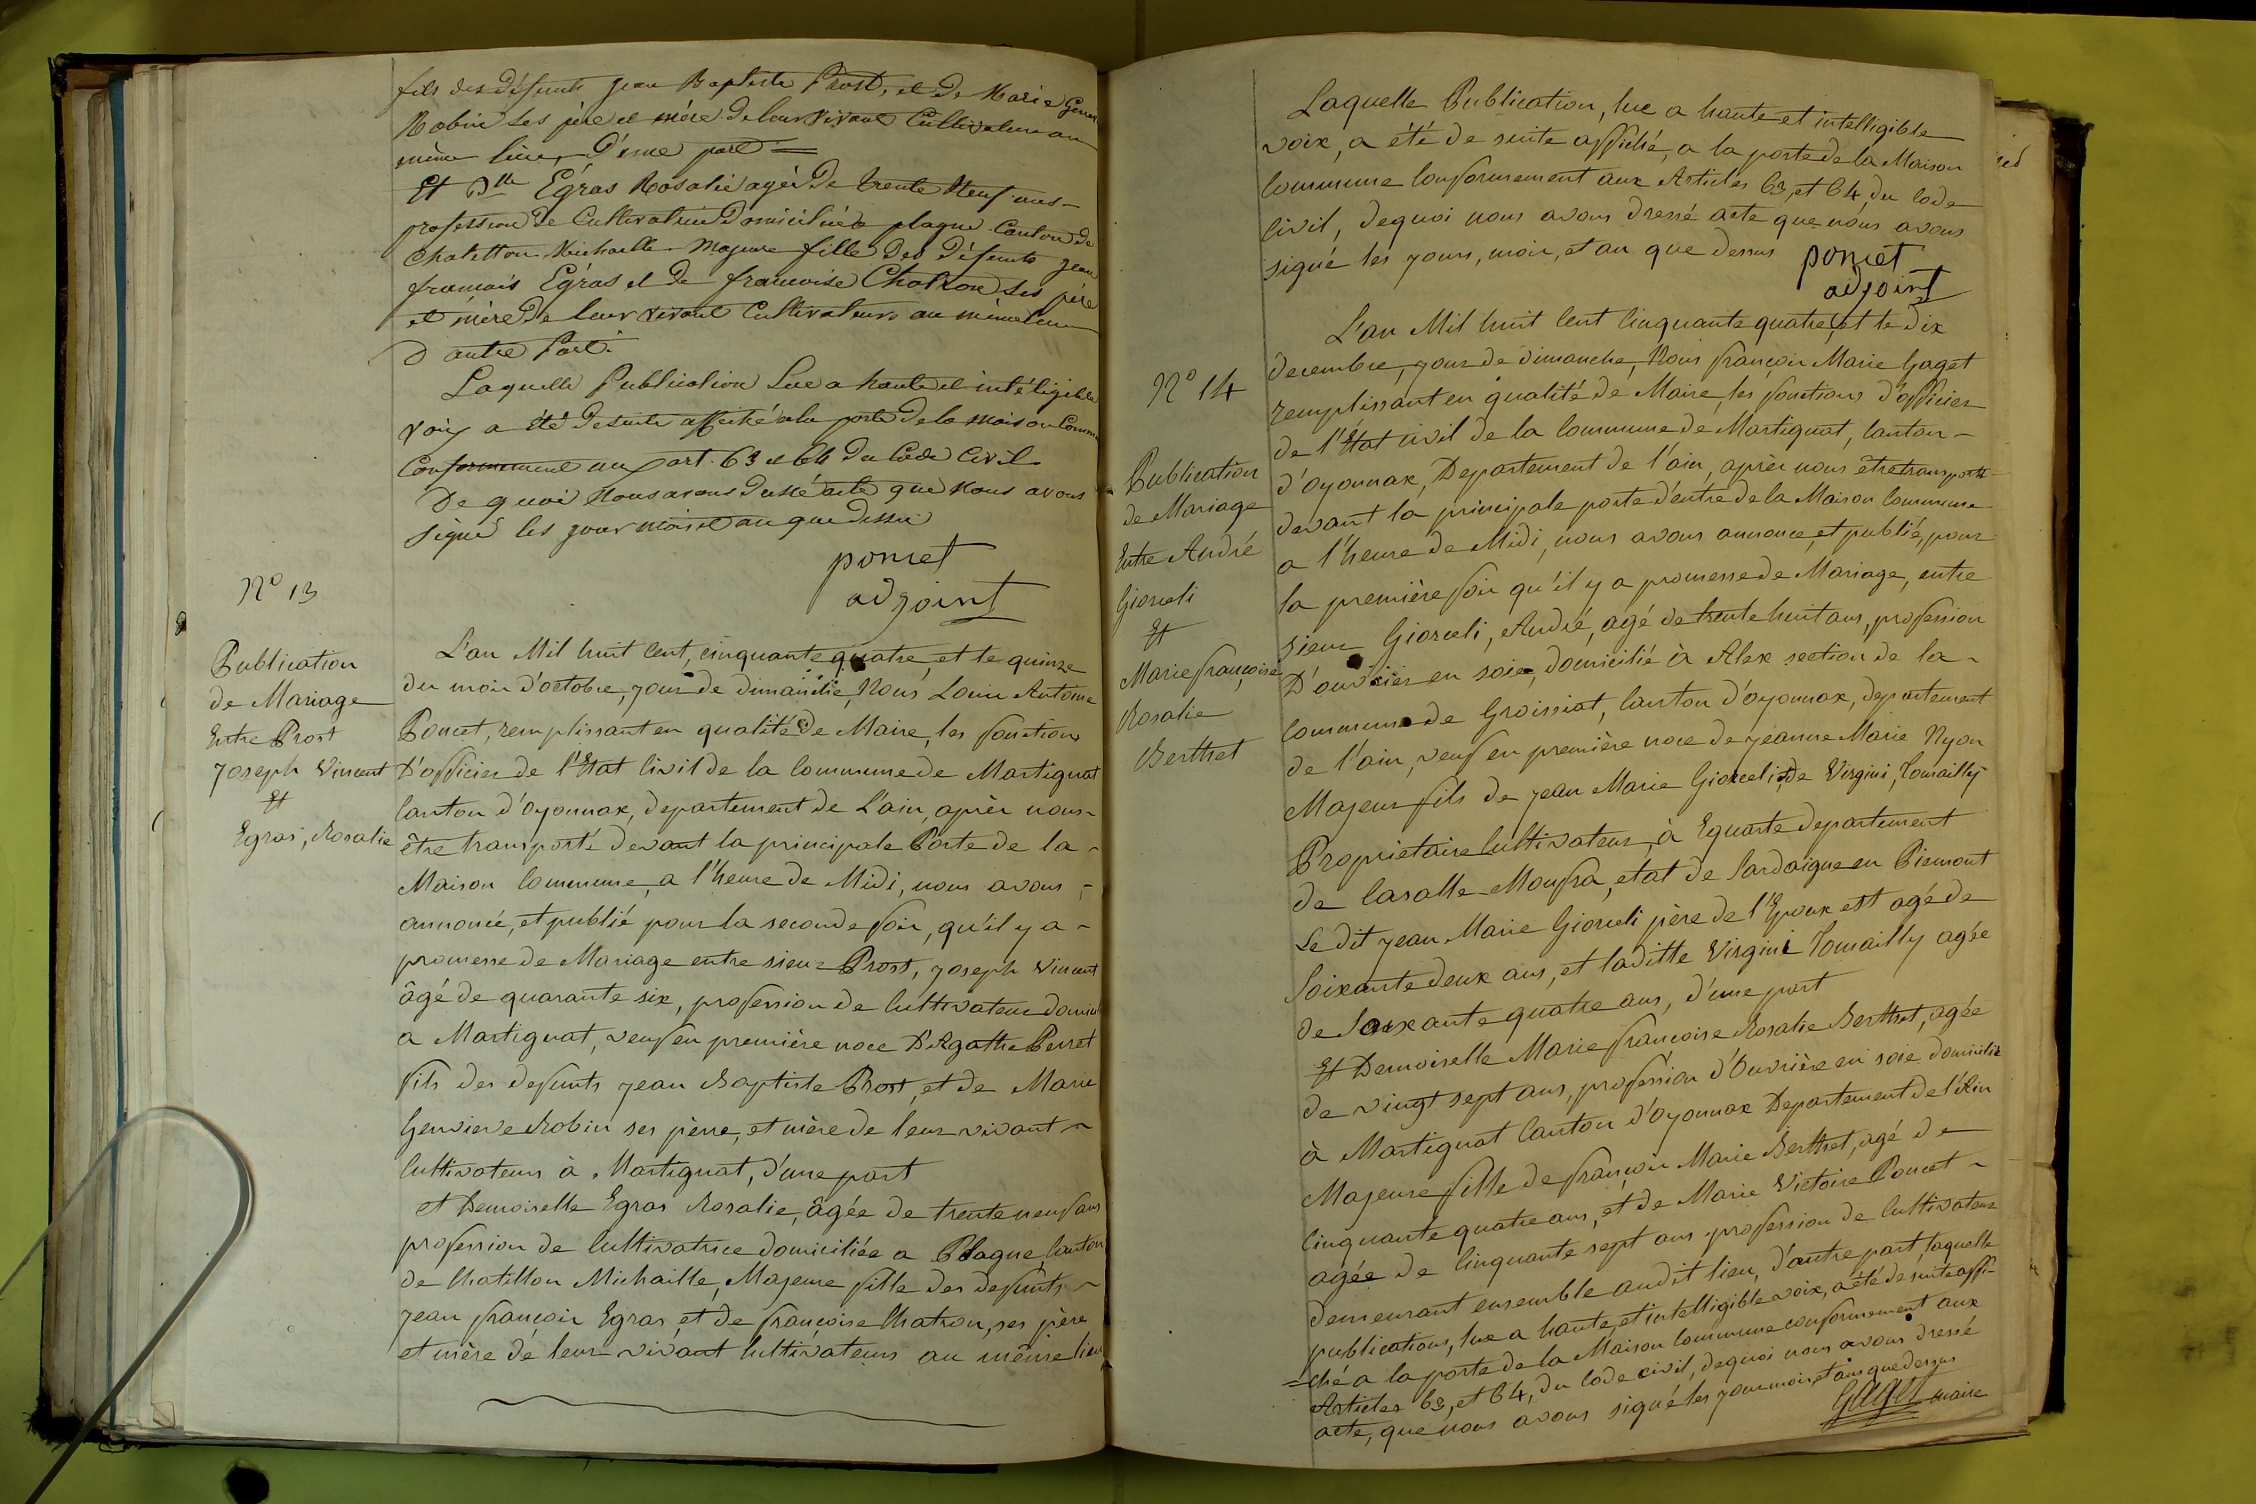 fils des défunts jean Baptiste Prost, et de Marie
Robin ses père et mère de leur vivant Cultivateur au
même lieu, D'une part =
Et Dlle Egras Rosalie agée de trente Neuf ans -
profession de Cultivatrice Domiciliée a plagne Canton de
Chatillon Michaille Majeure fille des Défunts Jean
francois Egras et De francoise Chatron ses père
et mère De leur vivant Cultivateurs au même lieu
D'autre Part.
Laquelle Publication Lue a haute et intéligible
Voix a été De suite affiché a la porte De la Maison
Conformement aux art. 63 et 64 du Code Civil
De quoi Nous avons Dressé acte que Nous avons
signé les jour mois et an que dessus
poncet
adjoint
N° 13
Publication
de Mariage
Entre Prost
Joseph Vincent
Et
Egras, Rosalie
L'an Mil huit Cent, cinquante quatre, et le quinze
du mois d'octobre, jour de dimanche, Nous Louis Antoine
Poncet, remplissant en qualité de Maire, les fonctions
D'officier de l'Etat Civil de la Commune de Martignat
Canton d'oyonnax, departement de L'ain, après nous
être transporté devant la principale Porte de la -
Maison Commune, a l'heure de Midi, nous avons -
annoncé, et publié pour la seconde fois, qu'il y a -
promesse de Mariage entre sieur Prost, Joseph Vincent
âgé de quarante six, profession de Cultivateur
a Martignat, veuf en première noce D'Agathe Perret
fils des defunts jean Baptiste Prost, et de Marie
Genvieve Robin ses père, et mère de leur vivant -
Cultivateurs à Martignat, d'une part
et Demoiselle Egras Rosalie, âgée de trente neuf ans
profession de Cultivatrice domiciliée a Plagne, Canton
de Chatillon Michaille, Majeure fille des defunts -
jean françois Egras, et de françoise Chatron, ses père
et mère de leur vivant Cultivateurs au même lieu
Laquelle Publication, lue a haute et intelligible
voix, a été de suite affiché, a la porte de la Maison
Commune Conformement aux Articles 63, et 64, du Code
Civil, dequoi nous avons dressé acte que nous avons
signé les jours, mois, et an que dessus poncet
adjoint
N° 14
Publication
de Mariage
Entre André
Giorceli
Et
Marie françoise
Rosalie
Berthet
L'an Mil huit Cent Cinquante quatre, et le Dix
decembre, jour de dimanche, Nous françois Marie Gaget
remplissant en qualité de Maire, les fonctions d'officier
de l'Etat Civil de la Commune de Martignat, Canton -
d'oyonnax, Departement de l'ain, après nous être transporté
devant la principale porte d'entre de la Maison Commune
a l'heure de Midi, nous avons annoncé, et publié, pour
la première fois qu'il y a promesse de Mariage, entre
sieur Giorceli, André, agé de trente huit ans, profession
D'ouvrier en soie, domicilié à Alex section de la -
Commune de Groissiat, Canton d'oyonnax, departement
de l'ain, veuf en première noce de jeanne Marie Nyon
Majeur fils de jean Marie Giorceli, et de Virgini, Tomailly
Proprietaire Cultivateur, à Eguarte departement
de Casalle-Monfra, etat de Sardaigne en Piemont
Le dit jean Marie Giorceli père de l'Epoux est agé de
Soixante deux ans, et laditte Virgini Tomailly agée
de Soixante quatre ans, d'une part
Et Demoiselle Marie françoise Rosalie Berthet, agée
de vingt sept ans, profession d'Ouvrière en soie domicilié
à Martignat Canton d'oyonnax Departement de l'Ain
Majeure fille de françois Marie Berthet, agé de
Cinquante quatre ans, et de Marie Victoire Poncet -
agée de Cinquante sept ans profession de Cultivateur
demeurant ensemble audit lieu, d'autre part, laquelle
publications, lue a haute, et intelligible voix, a été de suite affi-
=ché a la porte de la Maison Commune conformement aux
Articles 63, et 64, du Code civil, dequoi nous avons dressé
acte, que nous avons signé les jour mois, et ans que dessus
Gaget maire